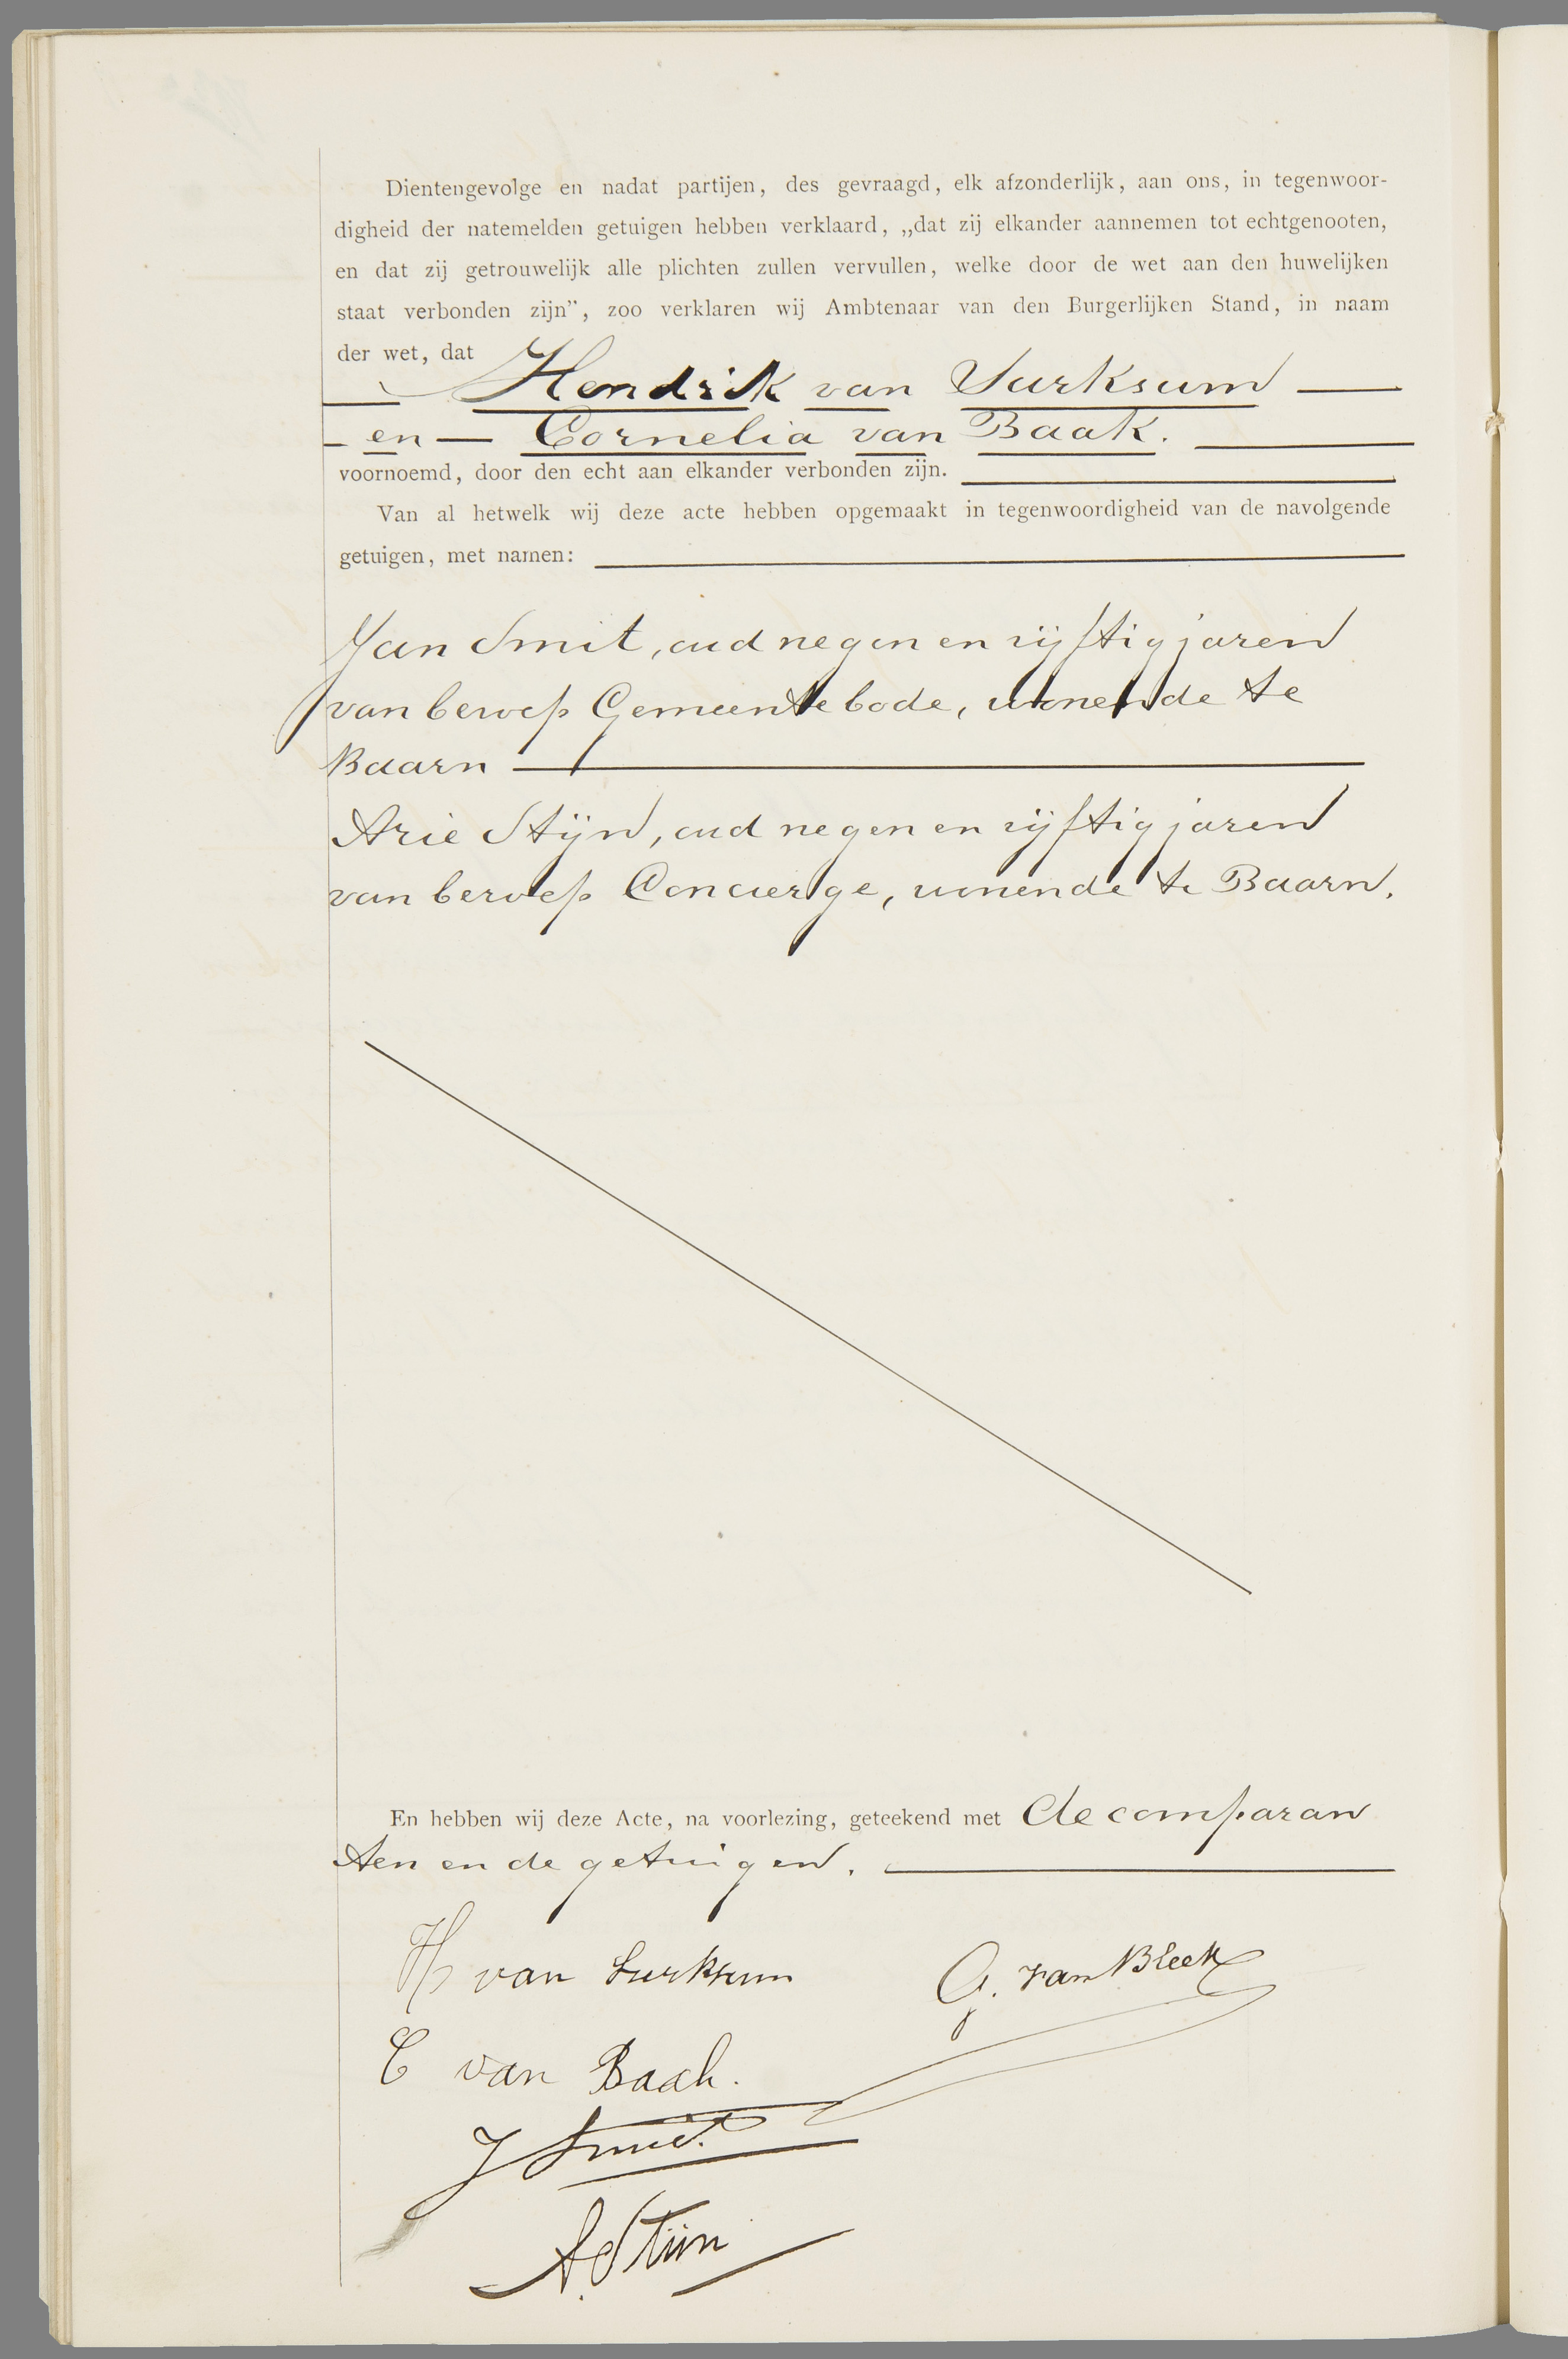 Dientengevolge en nadat partijen, des gevraagd, elk afzonderlijk, aan ons, in tegenwoor-
digheid der natemelden getuigen hebben verklaard, „dat zij elkander aannemen tot echtgenooten,
en dat zij getrouwelijk alle plichten zullen vervullen, welke door de wet aan den huwelijken
staat verbonden zijn”, zoo verklaren wij Ambtenaar van den Burgerlijken Stand, in naam
der wet, dat
Hendrik van Surksum
en Cornelia van Baak.
voornoemd, door den echt aan elkander verbonden zijn.
Van al hetwelk wij deze acte hebben opgemaakt in tegenwoordigheid van de navolgende
getuigen, met namen:
Jan Smit, oud negen en vijftig jaren
van beroep Gemeentebode, wonende te
Baarn
Arie Stijn, oud negen en vijftig jaren
van beroep Concierge, wonende te Baarn.
En hebben wij deze Acte, na voorlezing, geteekend met de comparan
ten en de getuigen.
H van Surksum
G. van Bleek
C van Baak.
J Smit.
A. Stijn